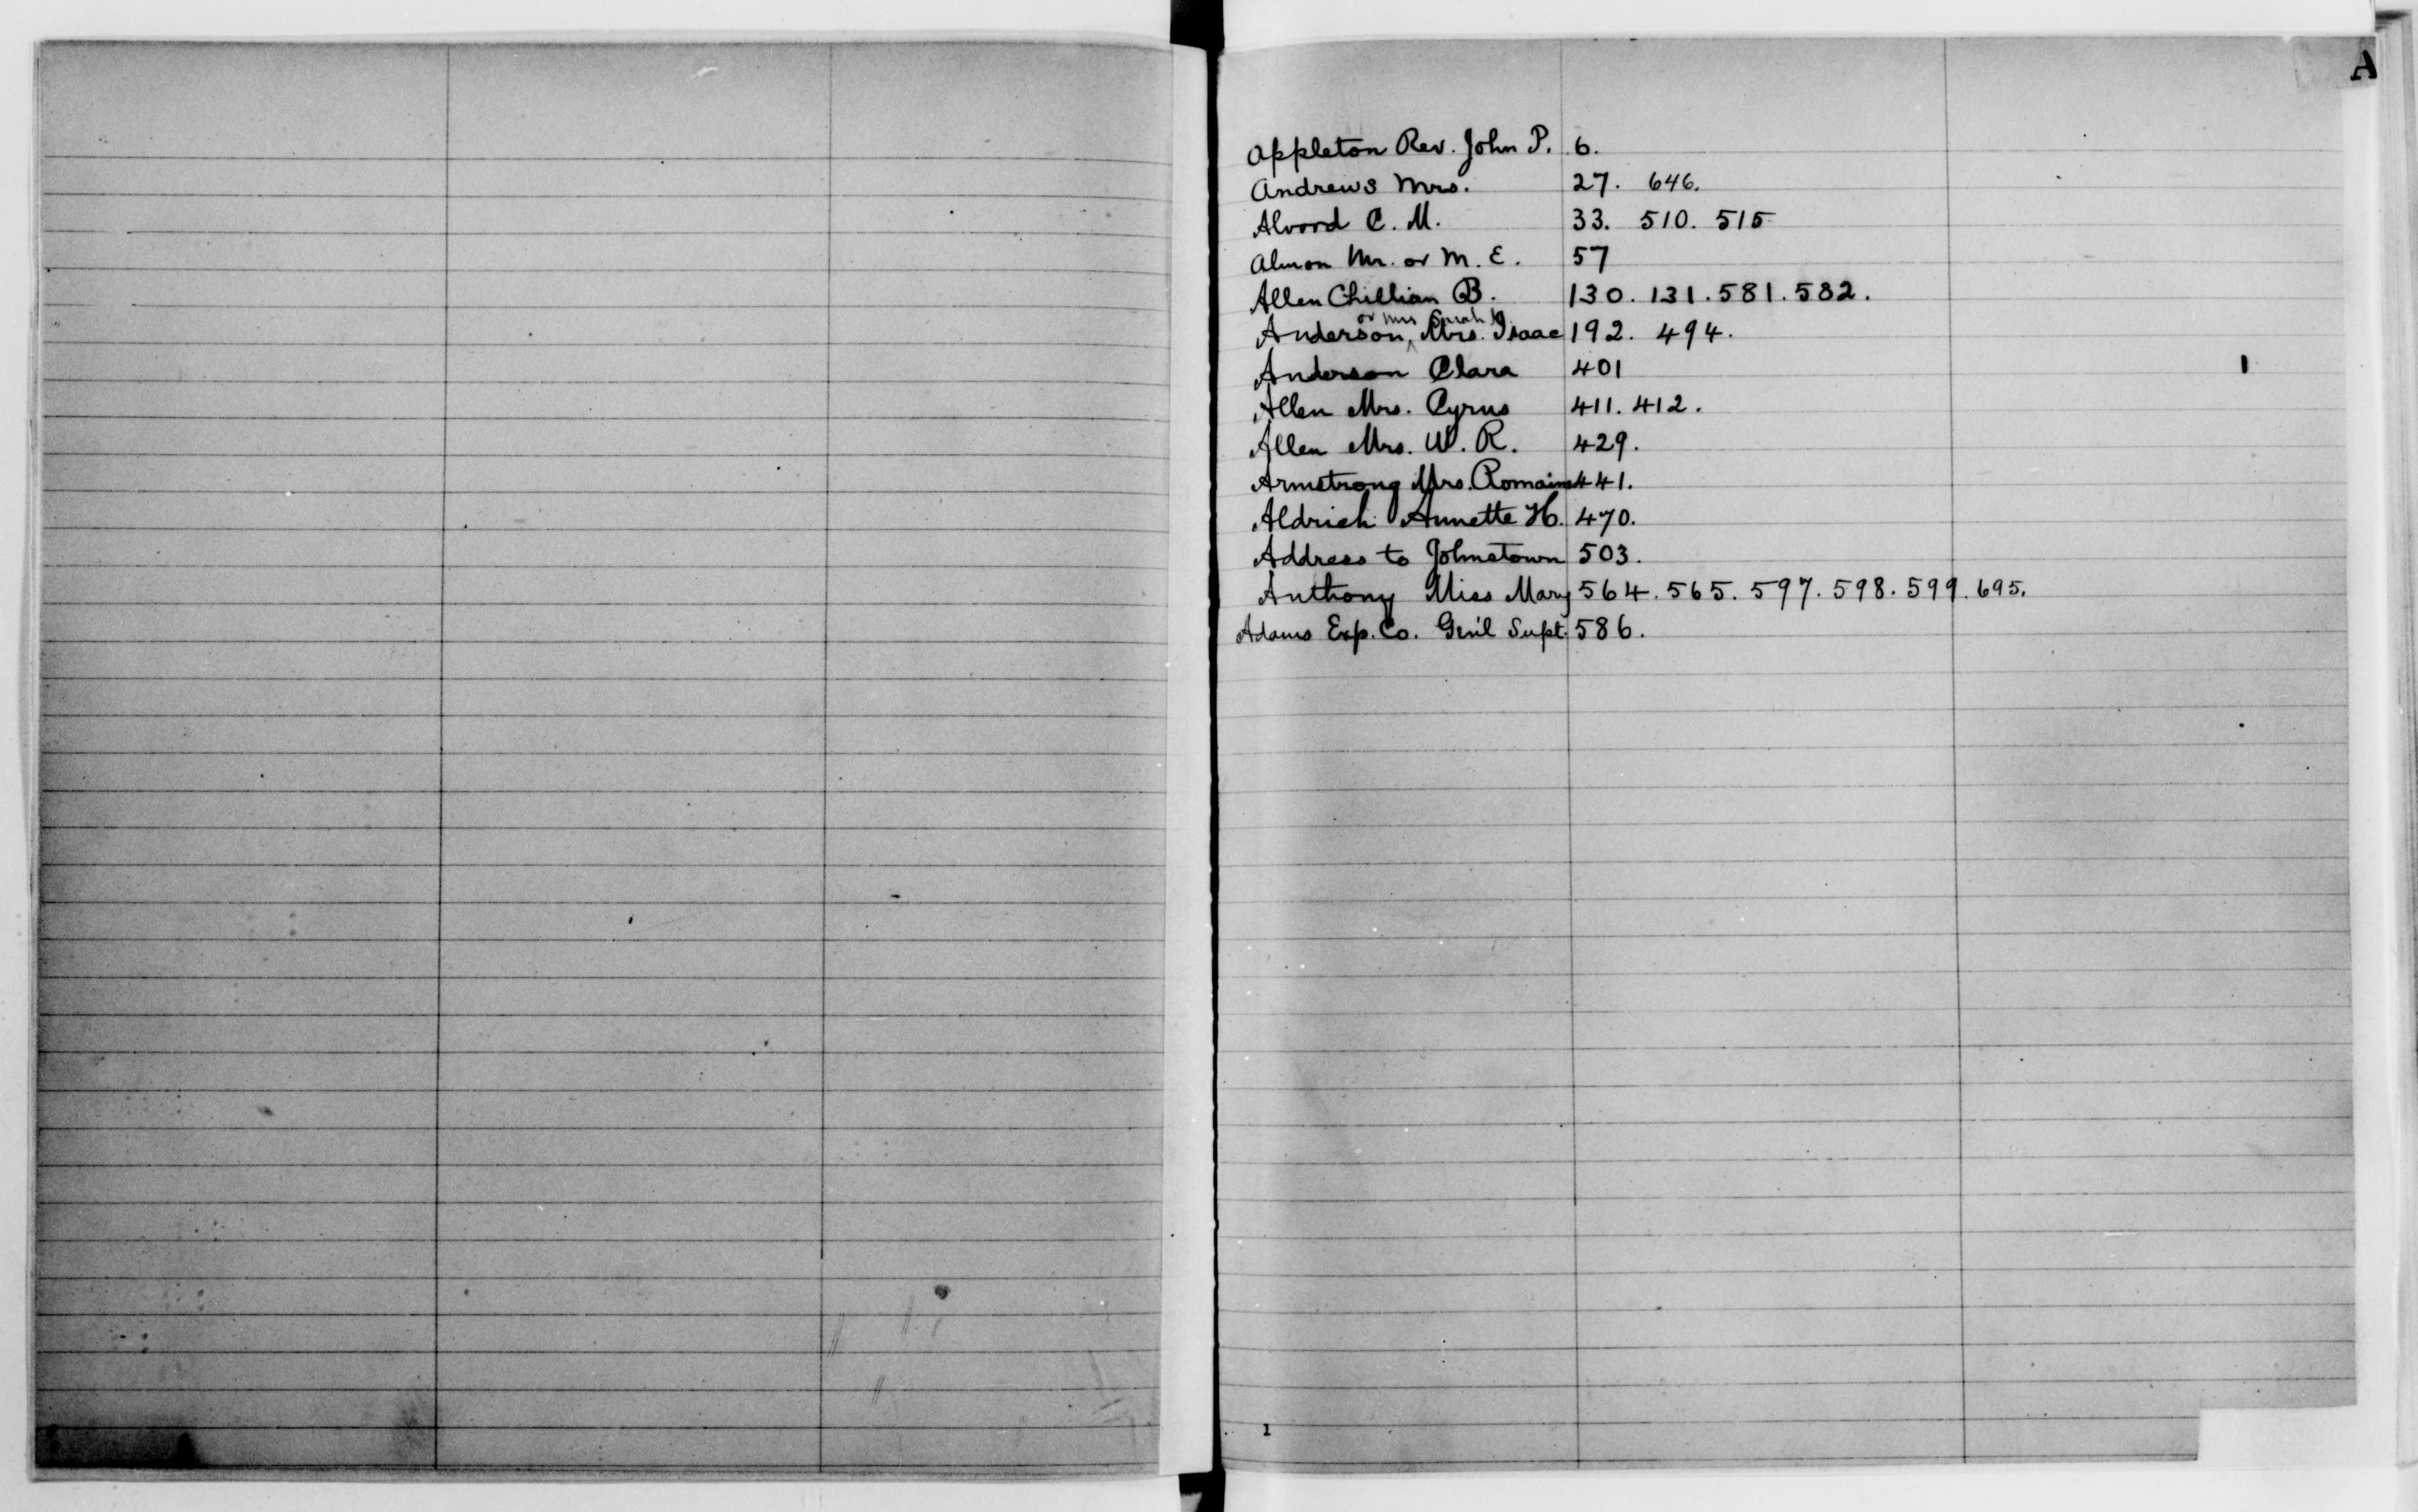 A
Appleton Rev. John P. 6.
Andrews Mrs. 27. 646.
Alvord C. M. 33. 510. 515
Almon Mr. or M. E. 57
Allen Chillian B. 130. 131. 581. 582.
or Mrs Sarah
Anderson, ^ Mrs. Isaac 192. 494.
Anderson Clara 401
Allen Mrs. Cyrus 411. 412.
Allen Mrs. W. R. 429.
Armstrong Mrs. Romaine 441.
Aldrich Annette H. 470.
Address to Johnstown 503.
Anthony Miss Mary 564. 565. 597. 598. 599. 695.
Adams Exp. Co. Gen'l Supt. 586.
1